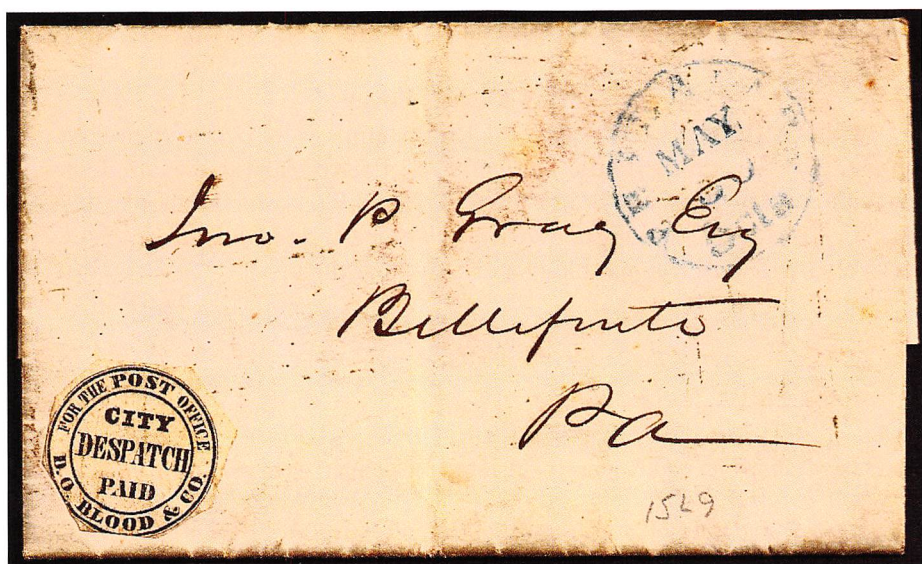 MAY
5 cts
Jno. P Gray Esq
Bellefonte
Pa
FOR THE POST OFFICE
CITY
DESPATCH
PAID
D.O. BLOOD & CO.
15L9